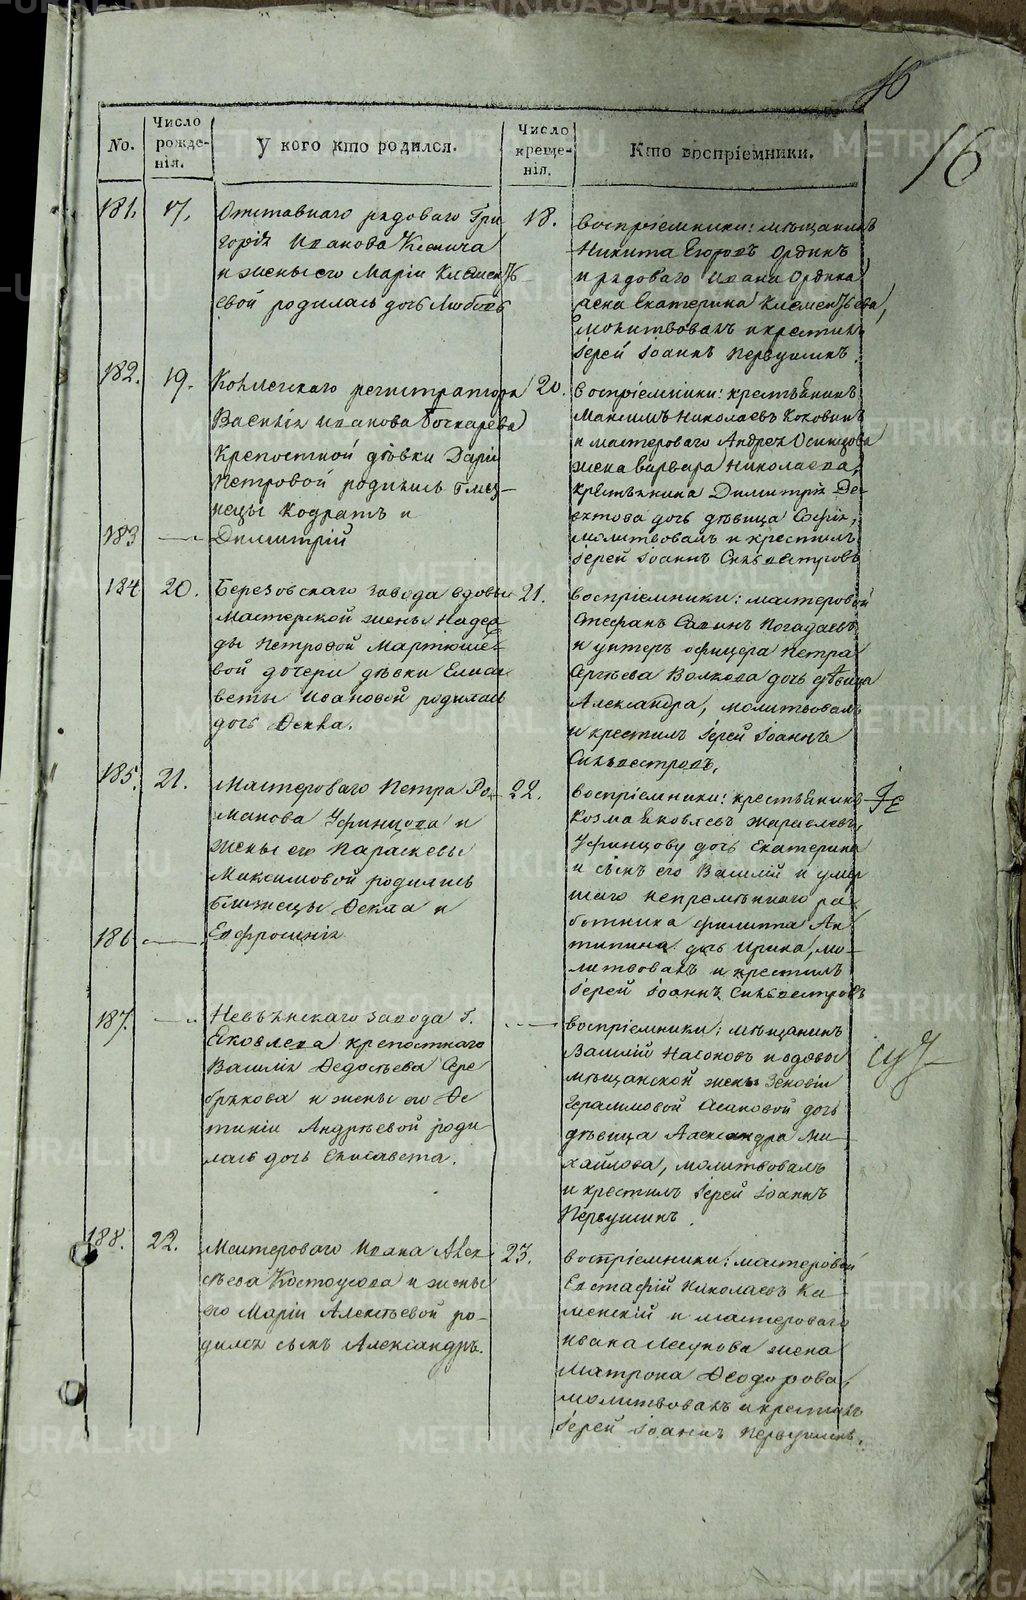 16
No.
Число рожде-нія.
У кого кто родился.
Число креще-нія.
Кто воспріемники.
181.
17.
Отставнаго рядоваго Гри
горія Иванова
и жены его Маріи Клементь
евой родилась дочь Любовь
18.
воспріемники: мѣщанинъ
Никита Егоровъ Ординъ
и рядоваго Ивана Ордина
жена Екатерина Клементьева,
молитвовалъ и крестилъ
Іерей Іоаннъ Первушинъ.
182.
19.
Коллежскаго регистратора
Василія Иванова Бочкарева
Крепостной дѣвки Дарьи
Петровой родились близ-
нецы Кодратъ и
183
Димитрій
20.
воспріемники: крестьянинъ
Максимъ Николаевъ Коковинъ
и мастероваго Андрея Осинцова
жена Варвара Николаева,
крестьянина Димитрія Де-
дочь дѣвица Софія,
молитвовалъ и крестилъ
Іерей Іоаннъ Сильвестровъ
184
20.
Березовскаго завода вдовы
Мастерской жены Надеж
ды Петровой Мартюше-
вой дочери дѣвки Елиса
веты Ивановой родилась
дочь Ѳекла.
21.
воспріемники: мастеровой
Стефанъ Савинъ Погадаевъ
и унтеръ офицера Петра
Сергѣева Волкова дочь дѣвица
Александра, молитвовалъ
и крестилъ Іерей Іоаннъ
Сильвестровъ.
185.
21.
Мастероваго Петра Ро-
манова Уфинцова и
жены его Параскевы
Максимовой родились
близнецы Ѳекла и
186
Евфросинія
22.
воспріемники: крестьянинъ
Козма Яковлевъ Журавлевъ,
Уфинцову дочь Екатерина
и сынъ его Василій и умер
шаго непремѣннаго ра
ботника Филиппа Ан
типина дочь Ирина, мо-
литвовалъ и крестилъ
Іерей Іоаннъ Сильвестровъ
187.
Невьянскаго завода Г.
Яковлева крепостнаго
Василія Ѳедосѣева Сере
брякова и жены его Ѳе
тиніи Андрѣевой роди
лась дочь Елисавета.
воспріемники: мѣщанинъ
Василій Насоновъ и вдовы
мѣщанской жены Зеновіи
Герасимовой Асановой дочь
дѣвица Александра Ми-
хайлова, молитвовалъ
и крестилъ Іерей Іоаннъ
Первушинъ.
188.
22.
Мастероваго Ивана Алек
сѣева Костоусова и жены
его Маріи Алексѣевой ро-
дился сынъ Александръ.
23.
воспріемники: мастеровой
Евстафій Николаевъ Ка-
менскій и мастероваго
Ивана Ляпунова жена
Матрона Ѳеодорова,
молитвовалъ и крестилъ
Іерей Іоаннъ Первушинъ.
METRIKI.GASO-URAL.RU